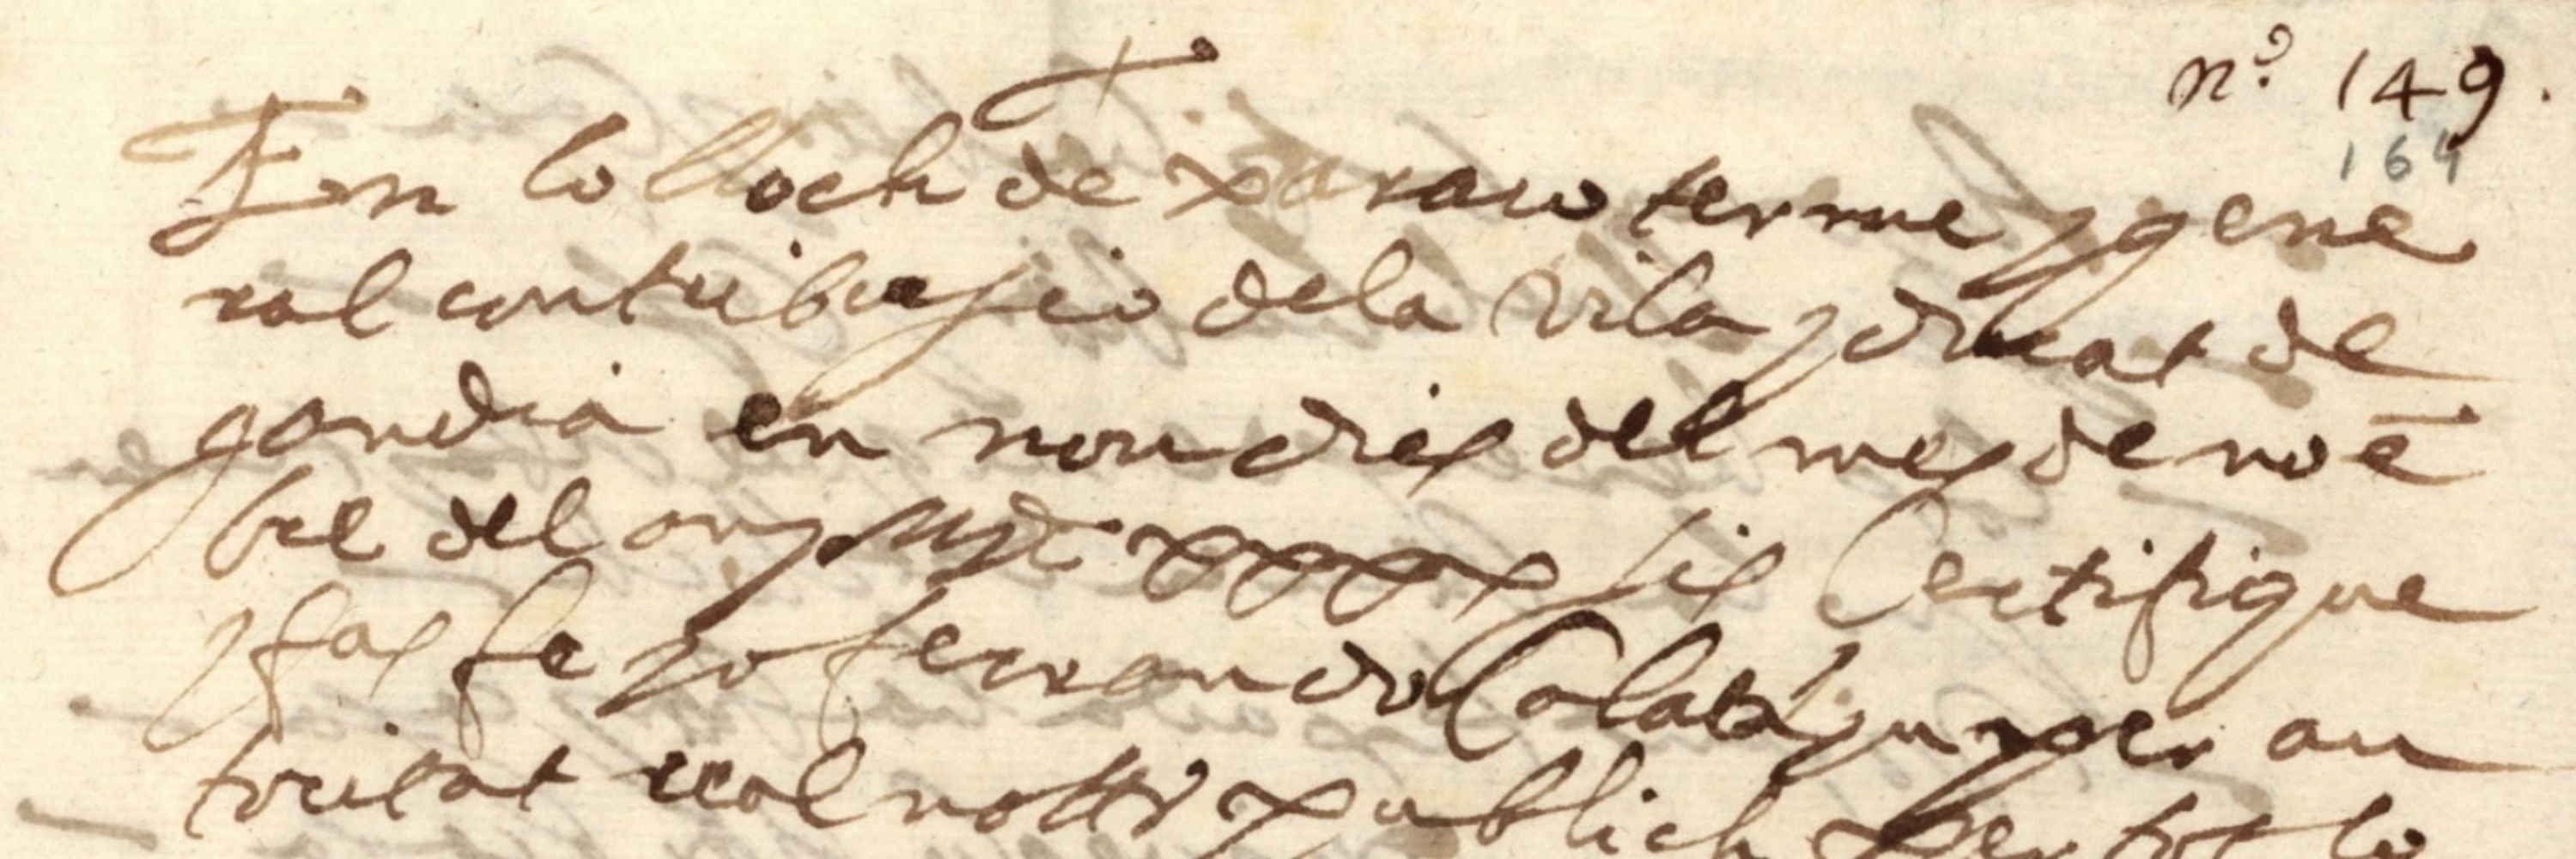 nº 149.
164
En lo lloch de xaraco terme y gene
ral contribusio dela vila y ducat de
gandia en nou dies del mes de noẽ
bre del any MDC xxxx sis Certifique
y fas fe yo ferrando per au
toritat real nottº publich per tot lo